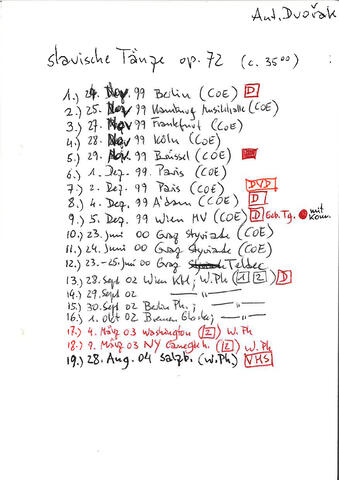 Ant. Dvořák
slavische Tänze op. 72 (c. 35'00)
1.) 24. Nov. 99 Berlin (COE) D
2.) 25. Nov 99 Hamburg Musikhalle (COE)
3.) 27. Nov 99 Frankfurt (COE)
4.) 28. Nov 99 Köln (COE)
5.) 29. Nov 99 Brüssel (COE)
6.) 1. Dez. 99 Paris (COE)
7.) 2. Dez. 99 Paris (COE) DVD
8.) 4. Dez. 99 A'dam (COE) D
9.) 5. Dez. 99 Wien MV (COE) D Geb. Tg. mit Komm.
10.) 23. Juni 00 Graz Styriade (COE)
11.) 24. Juni 00 Graz Styriade (COE)
12.) 23.-25. Juni 00 Graz Teldec
13.) 28. Sept 02 Wien KH; W.Ph (1 2) D
14.) 29. Sept 02 —"— —"—
15.) 30. Sept 02 Berlin Ph.; —"—
16.) 1. Okt 02 Bremen Glocke; —"—
17.) 4. März 03 Washington (2) W. Ph
18.) 9. März 03 NY Carnegieh. (2) W. Ph
19.) 28. Aug. 04 Salzb. (W.Ph.) VHS